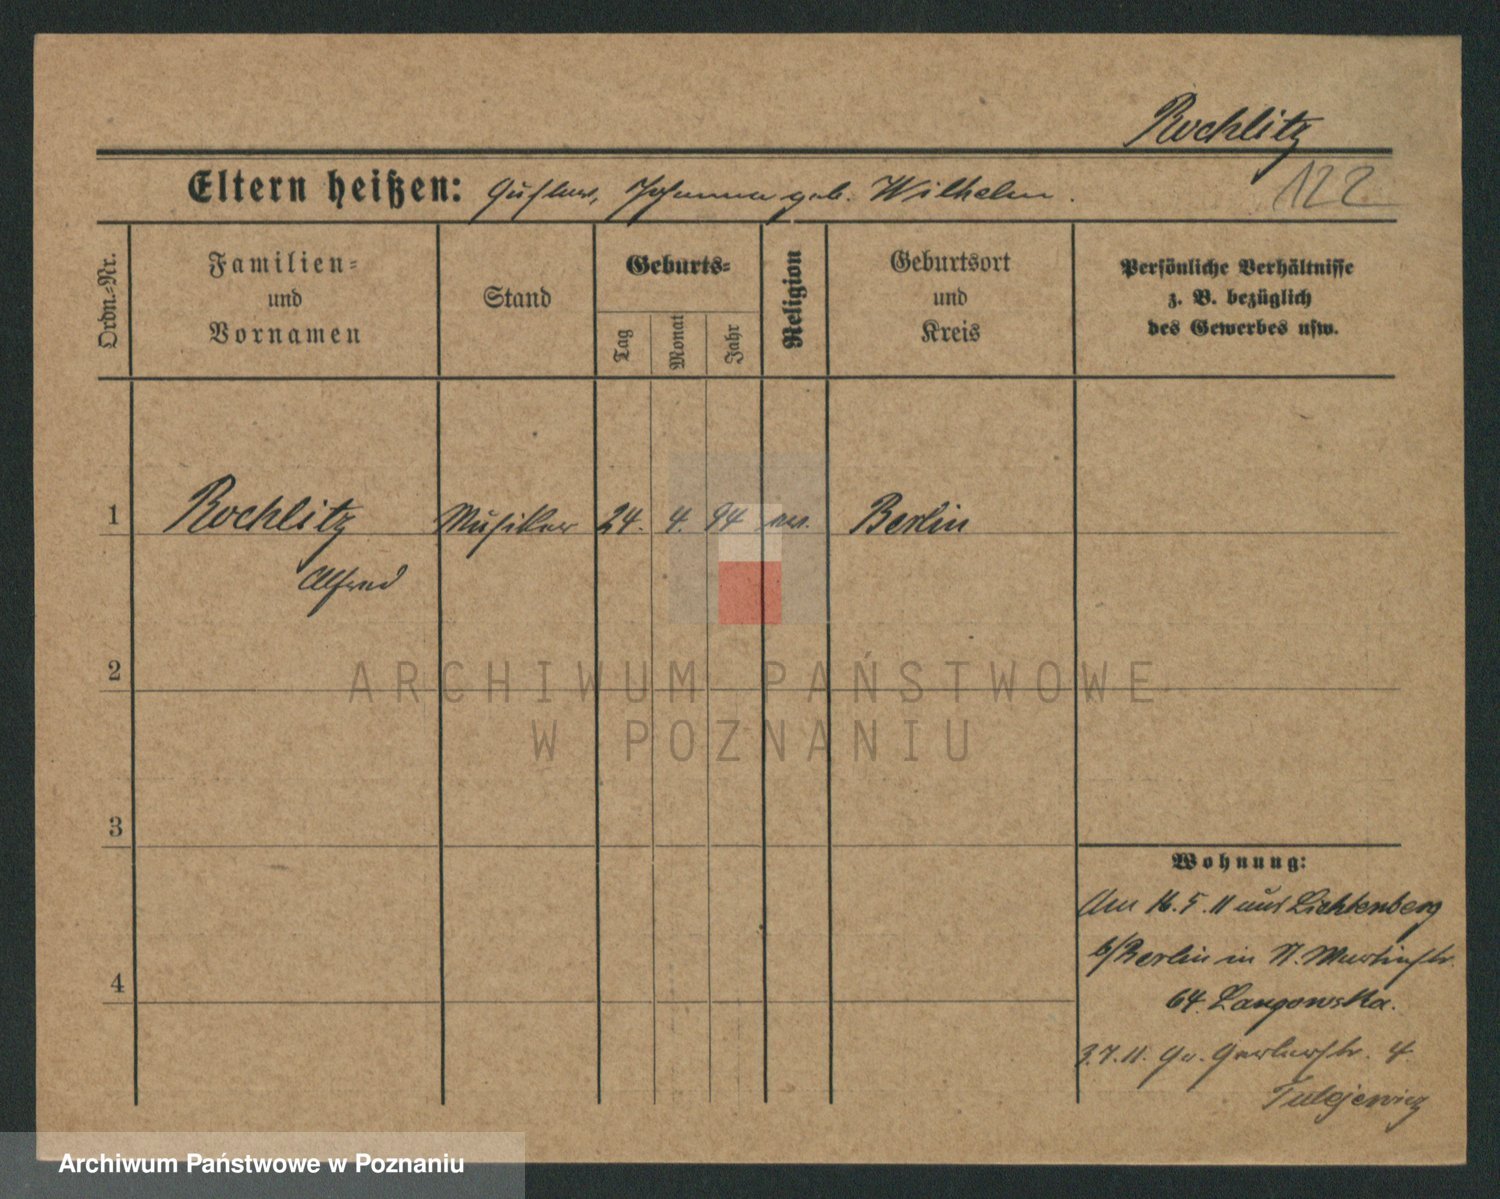 Rochlitz
Eltern heißen: Gustav, Johanna geb. Wilhelm.
122
Ordn.-Nr.
Familien-
und
Vornamen
Stand
Geburts-
Tag
Monat
Jahr
Religion
Geburtsort
und
Kreis
Persönliche Verhältnisse
z. B. bezüglich
des Gewerbes usw.
1 Rochlitz Musiker 24. 4. 94 ev. Berlin
Alfred
2
ARCHIWUM PAŃSTWOWE
W POZNANIU
3
Wohnung:
Am 16.5.11 aus Lichtenberg
b/Berlin in St. Martinstr.
4
64. Langowska.
3.7.11. Gerberstr. 4
Tulejewicz
Archiwum Państwowe w Poznaniu